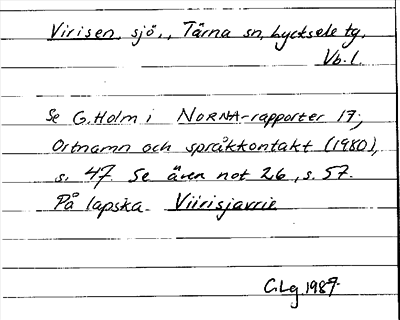 Virisen, sjö., Tärna sn, Lycksele tg,
Vb.l.
Se G. Holm i NORNA-rapporter 17;
Ortnamn och språkkontakt (1980),
s. 47 Se även not 26, s. 57.
På lapska. Viirisjavrie
C.Lg. 1989.